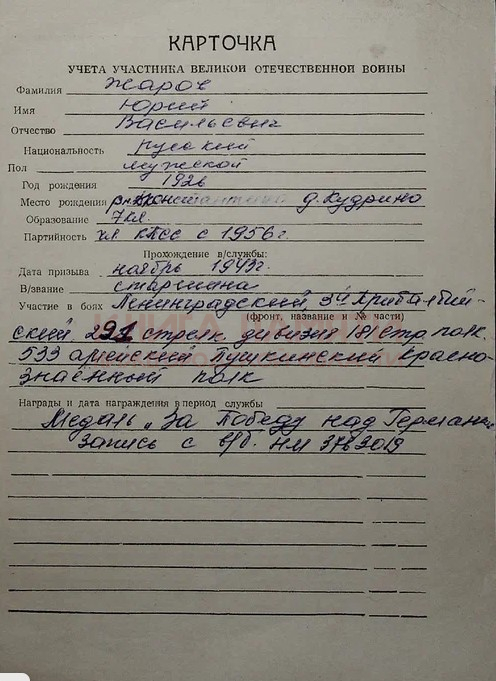 КАРТОЧКА
УЧЕТА УЧАСТНИКА ВЕЛИКОЙ ОТЕЧЕСТВЕННОЙ ВОЙНЫ
Фамилия Жаров
Имя Юрий
Отчество Васильевич
Национальность русский
Пол мужской
Год рождения 1926
Место рождения д. Кудрино
Образование 7 кл.
Партийность чл. КПСС с 1956 г.
Прохождение в/службы:
Дата призыва ноябрь 1943 г.
В/звание старшина
Участие в боях Ленинградский, 3й Прибалтий-
(фронт, название и № части)
ский, 291 стрелк. дивизия 181 стр. полк.
533 армейский Пушкинский красно-
знаённый полк
Награды и дата награждения в период службы
Медаль „За Победу над Германи
запись с в/б. НМ
КНИГА ПАМЯТИ